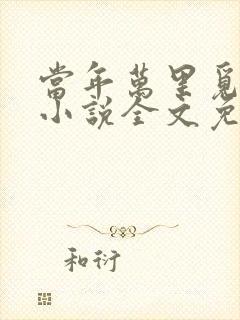 當年萬里覓
小說全文免
和衍